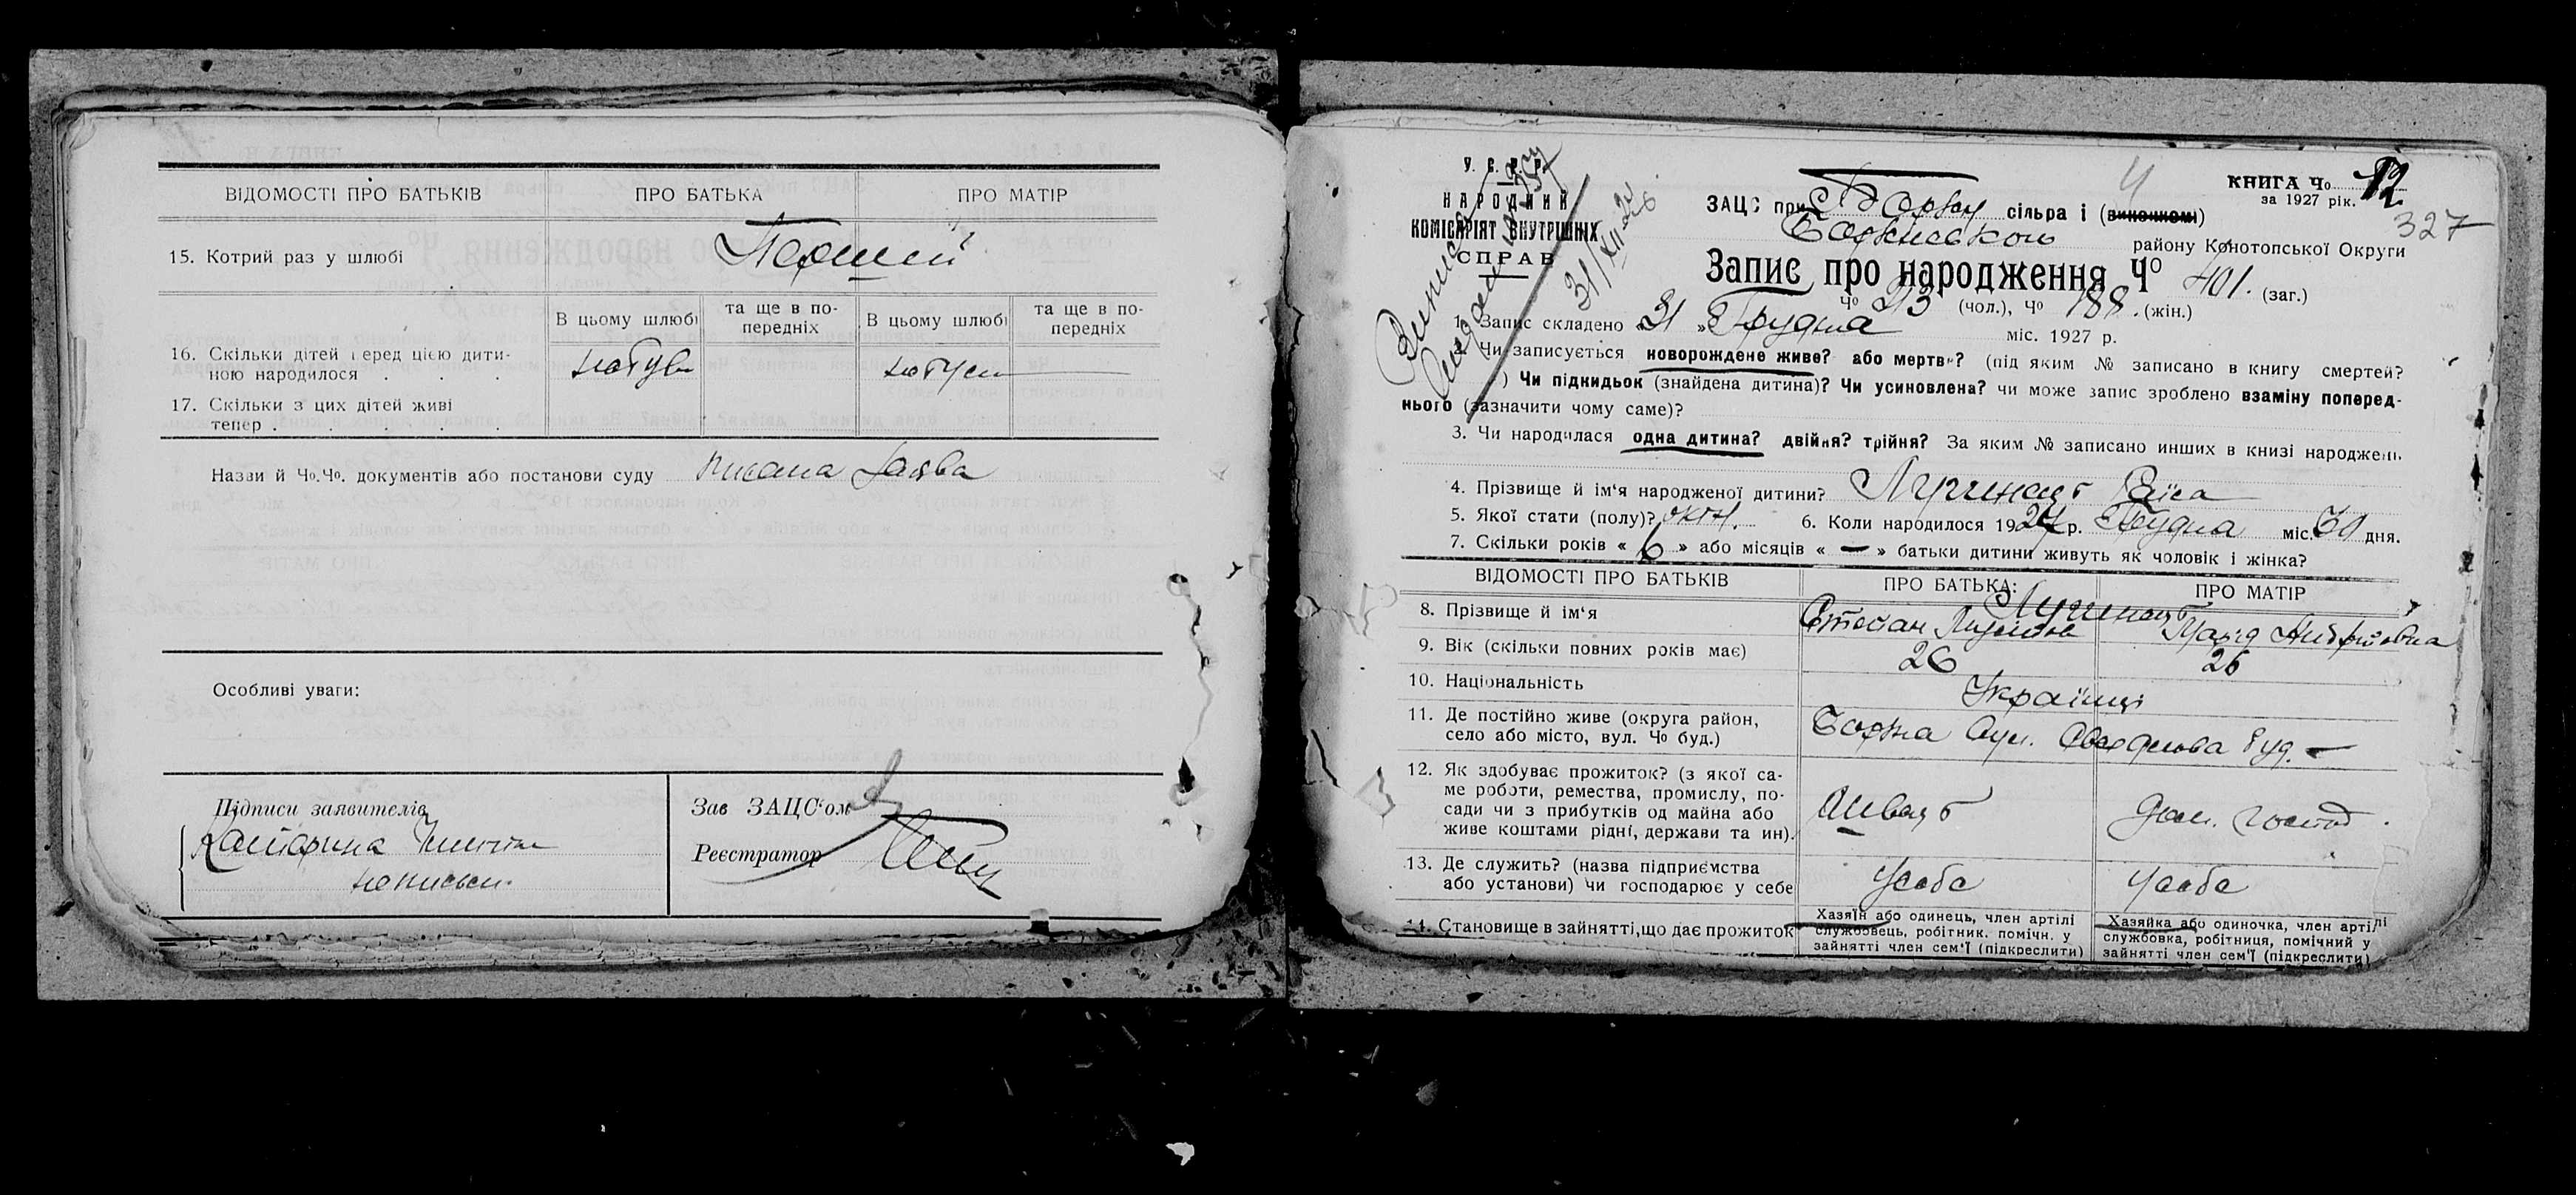 ВІДОМОСТІ ПРО БАТЬКІВ ПРО БАТЬКА ПРО МАТІР
15. Котрий раз у шлюбі Перший
В цьому шлюбі та ще в по-передніх В цьому шлюбі та ще в по-передніх
16. Скільки дітей перед цією дити-
ною народилося . . .
17. Скільки з цих дітей живі
тепер . . . .
Назви й Чо.Чо. документів або постанови суду Писана Заява
Особливі уваги:
Підписи заявителів
Зав ЗАЦС'ом
Реєстратор
У. С. Р. Р.
НАРОДНИЙ
КОМІСАРІЯТ ВНУТРІШНІХ
СПРАВ
КНИГА Чо 12
за 1927 рік.
327
ЗАЦС при Борзн сільраді (виконкомі)
Борзнського району Конотопської Округи
Запис про народження Чо 401. (заг.)
Чо 213 (чол.), Чо 188. (жін.)
1. Запис складено «31» Грудня міс. 1927 р.
2. Чи записується новорождене живе? або мертве? (під яким № записано в книгу смертей?
) Чи підкидьок (знайдена дитина)? Чи усиновлена? чи може запис зроблено взаміну поперед-
нього (зазначити чому саме)?
3. Чи народилася одна дитина? двійня? трійня? За яким № записано инших в книзі народжень
4. Прізвище й ім'я народженої дитини? Раїса
5. Якої стати (полу)? жін. 6. Коли народилося 1927 р. Грудня міс. 30 дня.
7. Скільки років « 6 » або місяців « — » батьки дитини живуть як чоловік і жінка?
ВІДОМОСТІ ПРО БАТЬКІВ ПРО БАТЬКА: ПРО МАТІР
8. Прізвище й ім'я Стефан
9. Вік (скільки повних років має) 26 26
10. Національність Українці
11. Де постійно живе (округа район,
село або місто, вул. Чо буд.) Борзна вул. буд. —
12. Як здобуває прожиток? (з якої са-
ме роботи, ремества, промислу, по-
сади чи з прибутків од майна або
живе коштами рідні, держави та ин). Швець дом. господ.
13. Де служить? (назва підприємства
або установи) чи господарює у себе У себе У себе
14. Становище в зайнятті, що дає прожиток
Хазяїн або одинець, член артілі
службовець, робітник. помічн. у
зайнятті член сем'ї (підкреслити)
Хазяйка або одиночка, член артілі
службовка, робітниця, помічний у
зайнятті член сем'ї (підкреслити)